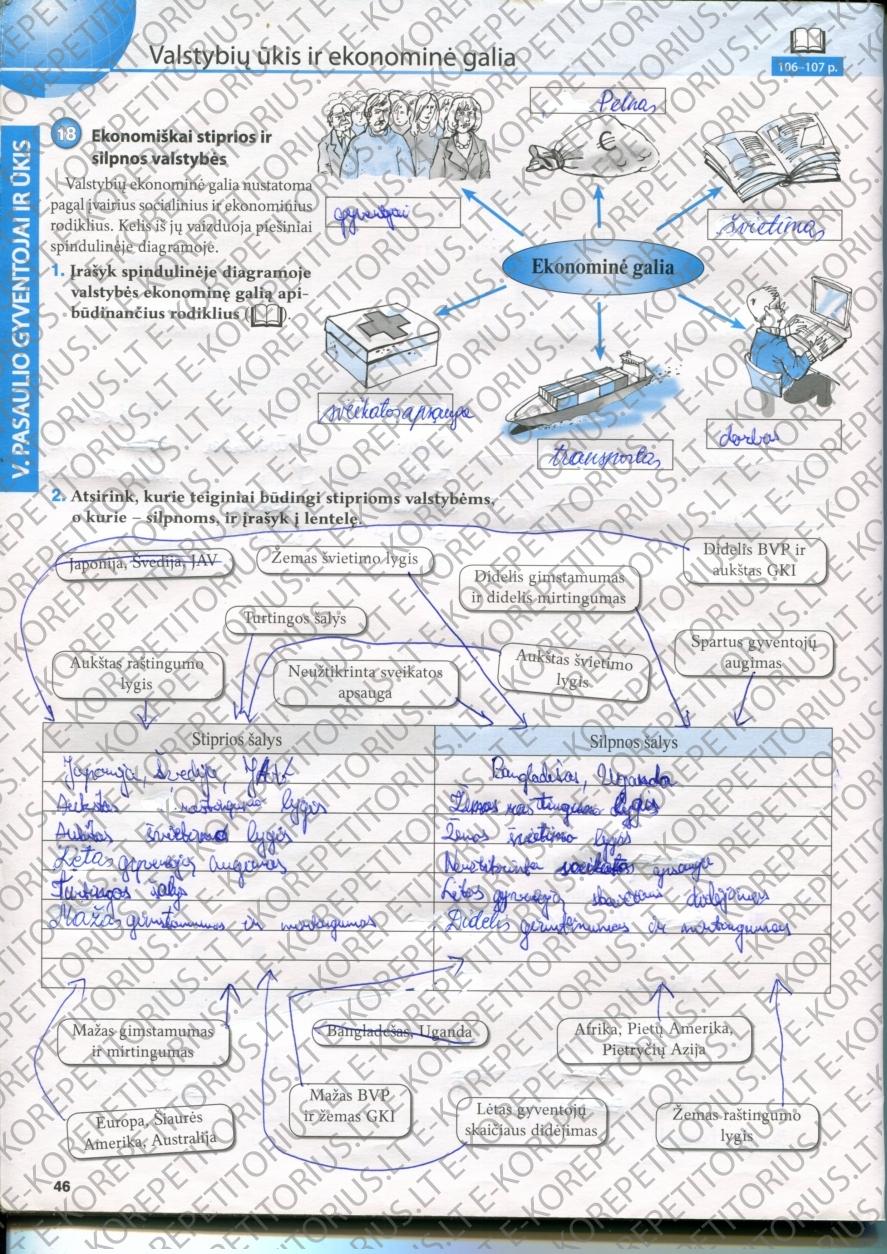 Valstybių ūkis ir ekonominė galia
106–107 p.
V. PASAULIO GYVENTOJAI IR ŪKIS
18 Ekonomiškai stiprios ir
silpnos valstybės
Valstybių ekonominė galia nustatoma
pagal įvairius socialinius ir ekonominius
rodiklius. Kelis iš jų vaizduoja piešiniai
spindulinėje diagramoje.
1. Įrašyk spindulinėje diagramoje
valstybės ekonominę galią api-
būdinančius rodiklius ( ).
Pelnas
€
gyventojai
švietimas
Ekonominė galia
sveikatos apsauga
transportas
darbas
2. Atsirink, kurie teiginiai būdingi stiprioms valstybėms,
o kurie – silpnoms, ir įrašyk į lentelę.
Japonija, Švedija, JAV
Žemas švietimo lygis
Didelis gimstamumas
ir didelis mirtingumas
Didelis BVP ir
aukštas GKI
Turtingos šalys
Aukštas raštingumo
lygis
Neužtikrinta sveikatos
apsauga
Aukštas švietimo
lygis
Spartus gyventojų
augimas
Stiprios šalys
Silpnos šalys
Japonija, Švedija, JAV
Bangladešas, Uganda
Aukštas raštingumo lygis
Žemas raštingumo lygis
Aukštas švietimo lygis
Žemas švietimo lygis
Lėtas gyventojų augimas
Neužtikrinta sveikatos apsauga
Turtingos šalys
Lėtas gyventojų skaičiaus didėjimas
Mažas gimstamumas ir mirtingumas
Didelis gimstamumas ir mirtingumas
Mažas gimstamumas
ir mirtingumas
Bangladešas, Uganda
Afrika, Pietų Amerika,
Pietryčių Azija
Europa, Šiaurės
Amerika, Australija
Mažas BVP
ir žemas GKI
Lėtas gyventojų
skaičiaus didėjimas
Žemas raštingumo
lygis
46
E-KOREPETITORIUS.LT